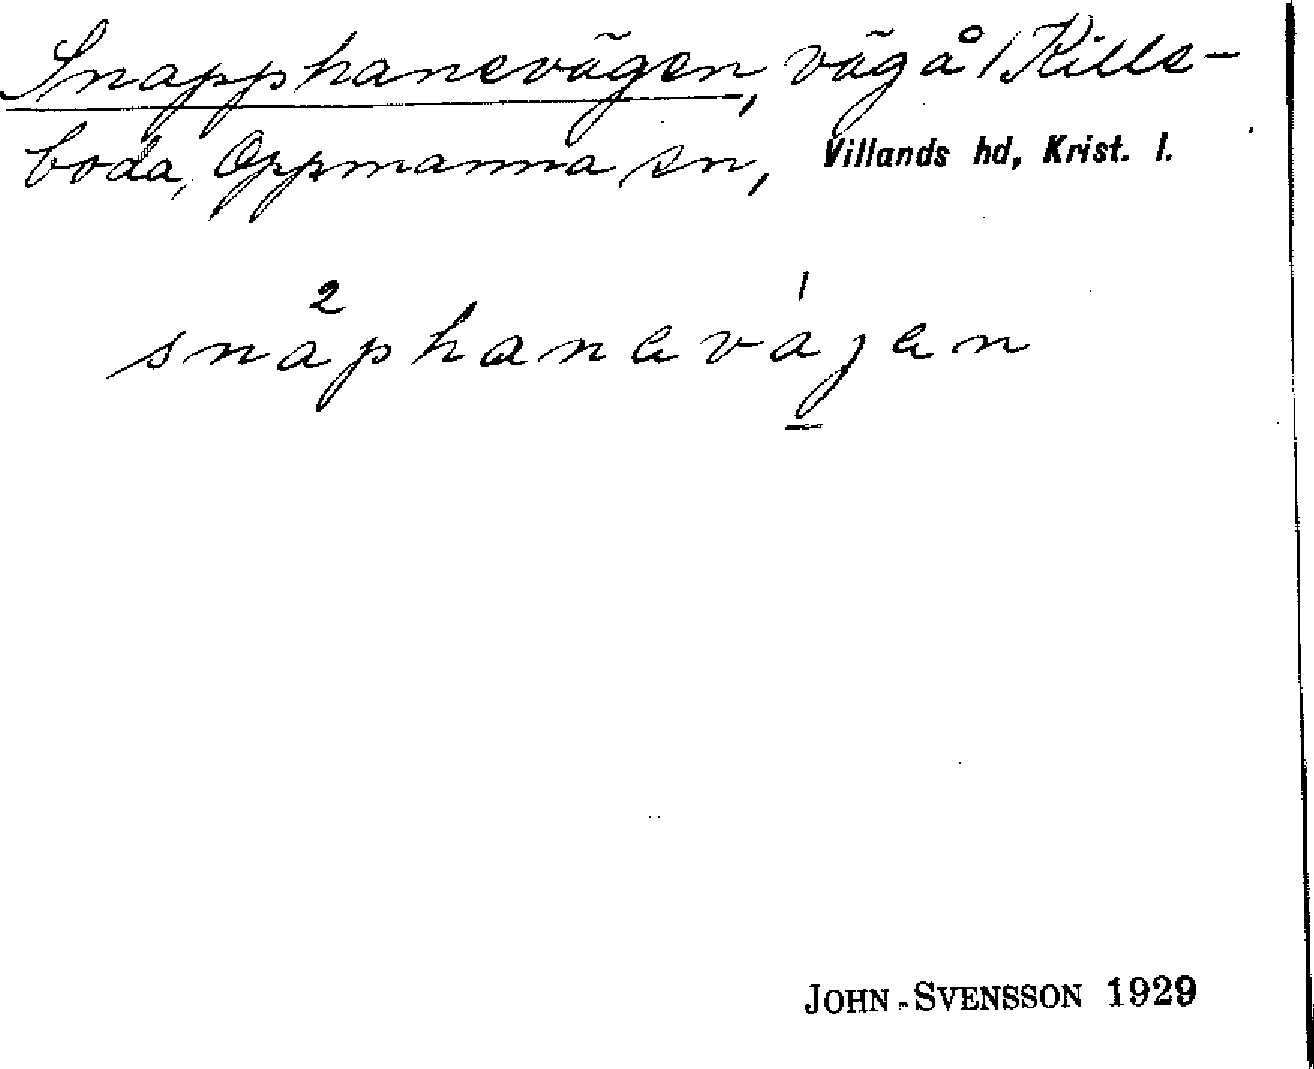 Snapphanevägen, väg å Kille-
boda, Oppmanna sn, Villands hd, Krist. l.
snaphanavajen
JOHN SVENSSON 1929